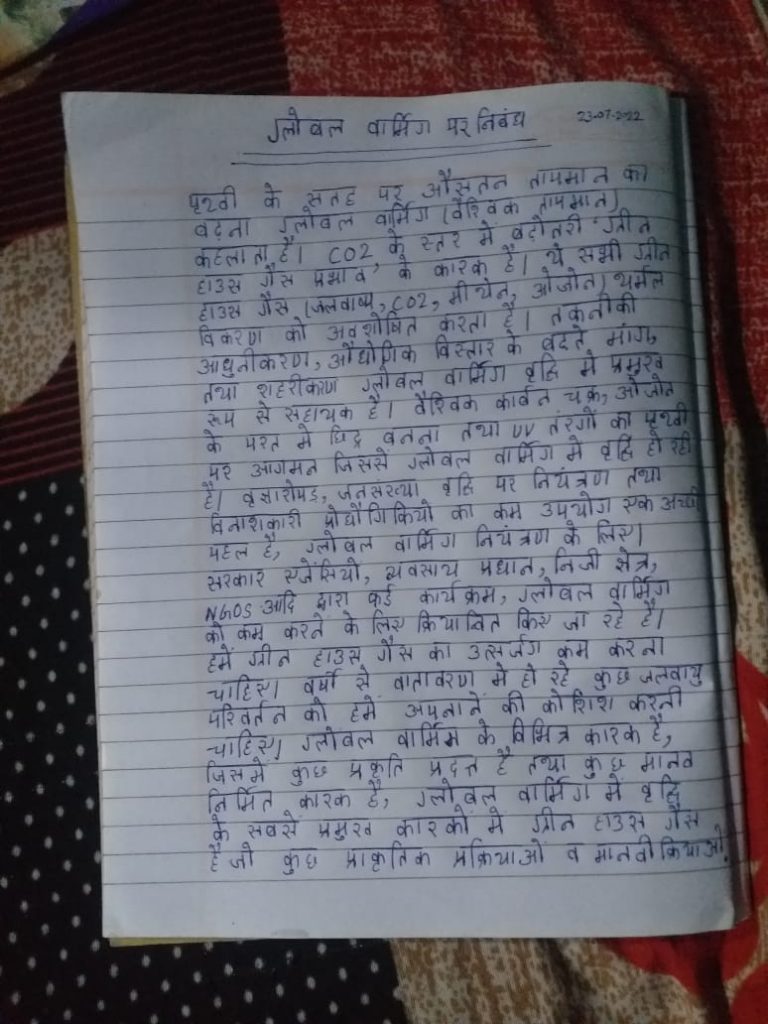 ग्लोबल वार्मिग पर निबंध 23-07-2022
पृथ्वी के सतह पर औसतन तापमान का
बढ़ना ग्लोबल वार्मिग (वैश्विक तापमान)
कहलाता है। CO2 के स्तर में बढ़ोतरी ग्रीन
हाउस गैस प्रभाव, के कारक है। ये सभी ग्रीन
हाउस गैस (जलवाष्प, CO2, मीथेन, ओजोन) थर्मल
विकरण को अवशोषित करता है। तकनीकी
आधुनीकरण, औद्योगिक विस्तार के बढ़ते मांग,
तथा शहरीकरण ग्लोबल वार्मिग वृद्धि में प्रमुख
रूप से सहायक है। वैश्विक कार्बन चक्र, ओजोन
के परत में छिद्र बनना तथा UV तरंगों का पृथ्वी
पर आगमन जिससे ग्लोबल वार्मिग में वृद्धि हो रही
है। वृक्षारोपड़, जनसंख्या वृद्धि पर नियंत्रण तथा
विनाशकारी प्रोद्यौगिकियो का कम उपयोग एक अच्छी
पहल है, ग्लोबल वार्मिग नियंत्रण के लिए।
सरकार एजेंसियो, व्यवसाय प्रधान, निजी क्षेत्र,
NGOS आदि द्वारा कई कार्यक्रम, ग्लोबल वार्मिग
को कम करने के लिए क्रियान्वित किए जा रहे है।
हमें ग्रीन हाउस गैस का उत्सर्जग कम करना
चाहिए। वर्षो से वातावरण में हो रहे कुछ जलवायु
परिवर्तन को हमें अपनाने की कोशिश करनी
चाहिए। ग्लोबल वार्मिग के विभिन्न कारक है,
जिसमें कुछ प्रकृति प्रदत्त है तथा कुछ मानव
निर्मित कारक है, ग्लोबल वार्मिग में वृद्धि
के सबसे प्रमुख कारकों में ग्रीन हाउस गैस
है जो कुछ प्राकृतिक प्रक्रियाओं व मानवी क्रियाओ